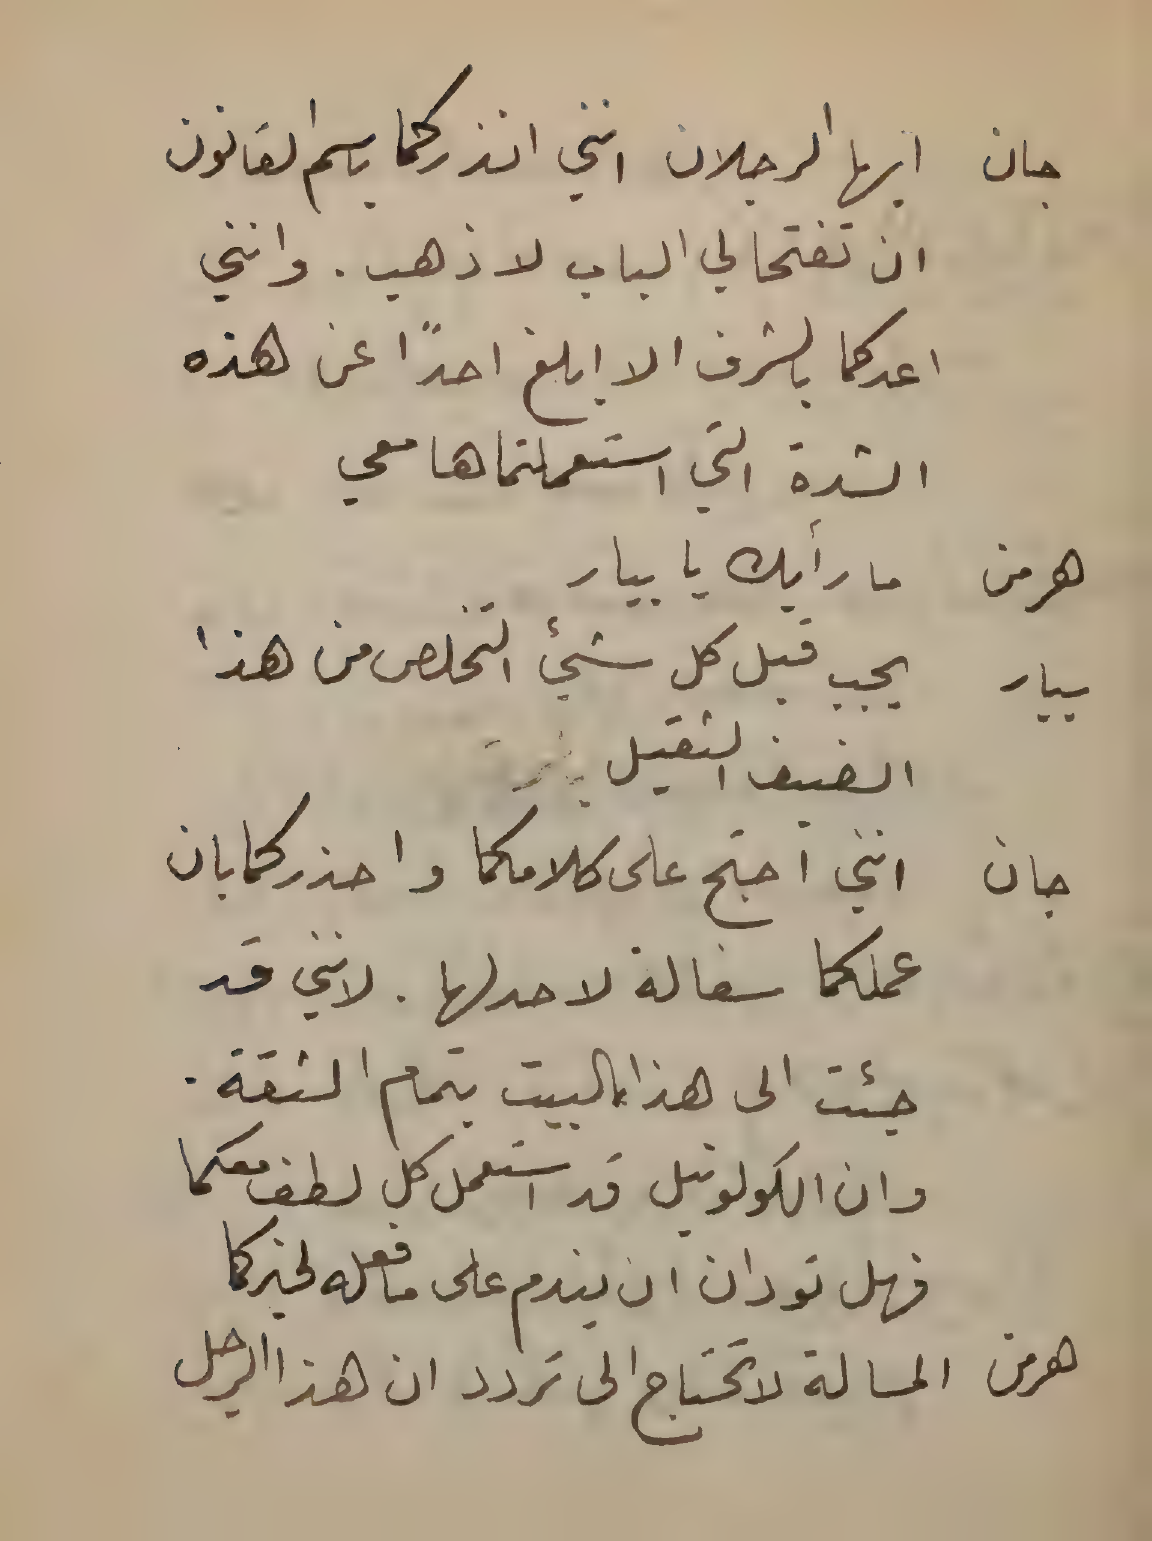 جان ايها الرجلان انني انذركما باسم القانون
ان تفتحا لي الباب لاذهب . وانني
اعدكما بالشرف الا ابلغ احدًا عن هذه
الشدة التي استعملتماها معي
هرمن ما رأيك يا بيار
بيار يجب قبل كل شئ التخلص من هذا
الضيف الثقيل
جان انني احتج على كلامكما واحذركما بان
عملكما سفالة لا حد لها . لانني قد
جئت الى هذا البيت بتمام الثقة .
وان الكولونيل قد استعمل كل لطف معكما
فهل تودان ان يندم على ما فعله لخيركما
هرمن المسالة لا تحتاج الى تردد ان هذا الرجل